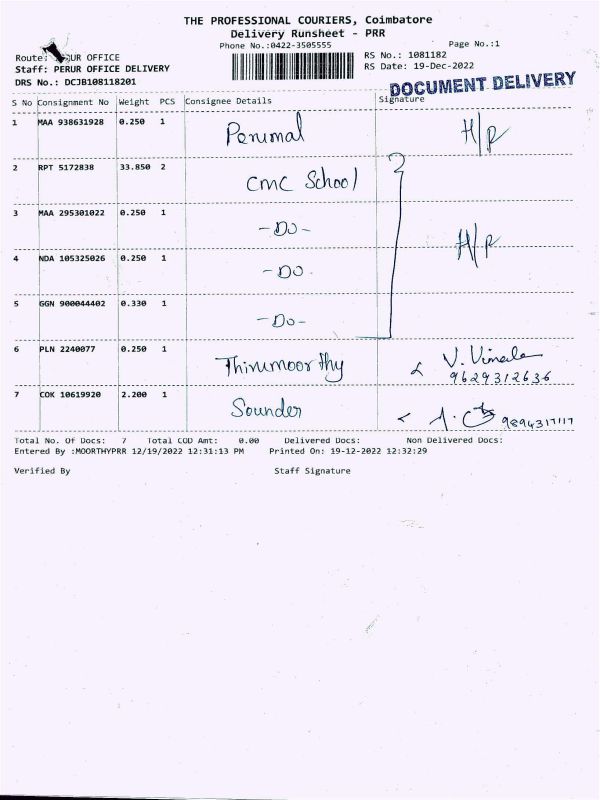 THE PROFESSIONAL COURIERS, Coimbatore
Delivery Runsheet - PRR
Phone No.:0422-3505555 Page No.:1
Route: OFFICE RS No.: 1081182
Staff: PERUR OFFICE DELIVERY RS Date: 19-Dec-2022
DRS No.: DCJB108118201
DOCUMENT DELIVERY
S No Consignment No Weight PCS Consignee Details Signature
1 MAA 938631928 0.250 1 Perumal H/R
2 RPT 5172838 33.850 2 CMC School
3 MAA 295301022 0.250 1 -Do- H/R
4 NDA 105325026 0.250 1 -DO-
5 GGN 900044402 0.330 1 -Do-
6 PLN 2240077 0.250 1 Thirumoorthy V. Vimala
9629312636
7 COK 10619920 2.200 1 Sounder 9894317117
Total No. Of Docs: 7 Total COD Amt: 0.00 Delivered Docs: Non Delivered Docs:
Entered By :MOORTHYPRR 12/19/2022 12:31:13 PM Printed On: 19-12-2022 12:32:29
Verified By Staff Signature